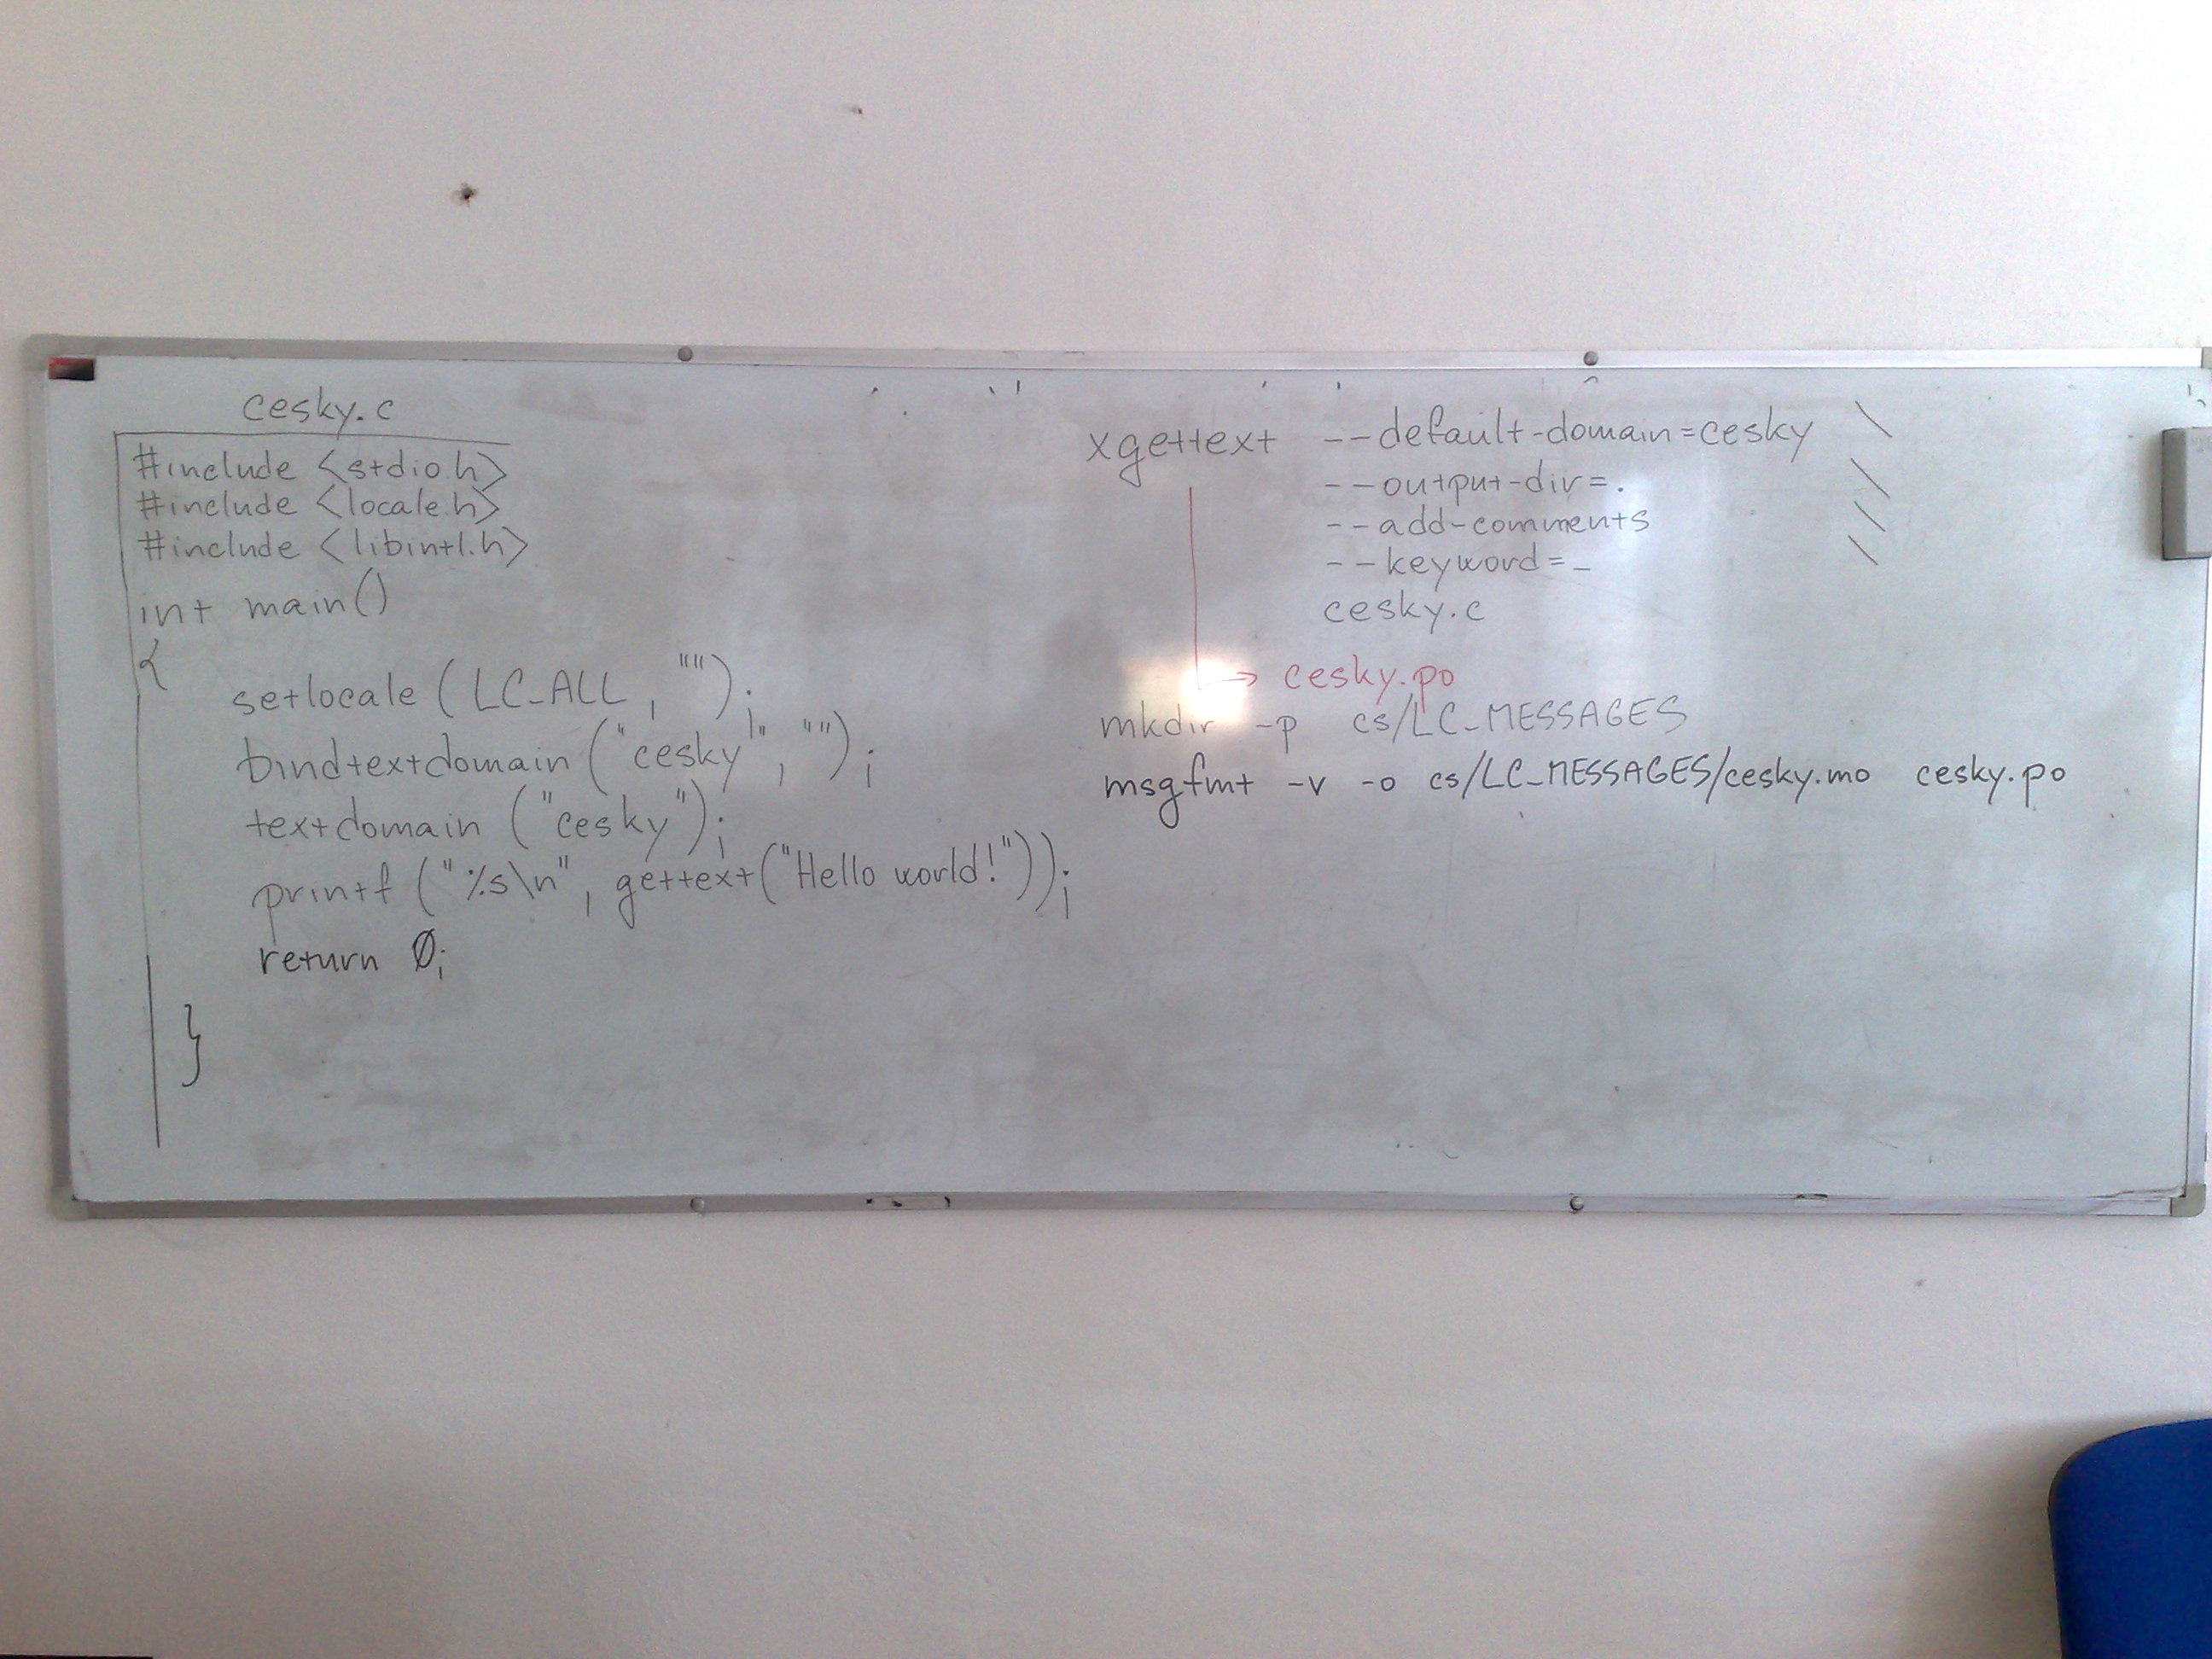 cesky.c
#include <stdio.h>
#include <locale.h>
#include <libintl.h>
int main()
{
setlocale (LC_ALL, "");
bindtextdomain ("cesky", "");
textdomain ("cesky");
printf ("%s\n", gettext("Hello world!"));
return 0;
}
xgettext --default-domain=cesky \
--output-dir=. \
--add-comments \
--keyword=_ \
cesky.c
→ cesky.po
mkdir -p cs/LC_MESSAGES
msgfmt -v -o cs/LC_MESSAGES/cesky.mo cesky.po